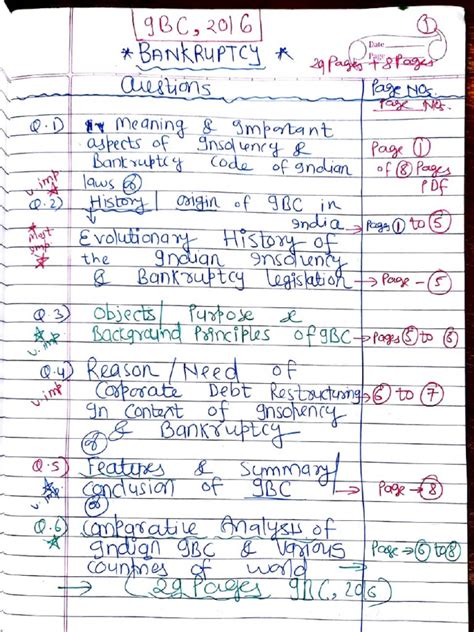 IBC, 2016
①
* BANKRUPTCY *
Date
Page
29 Pages + 8 Pages
Questions
Page NOs.
Page Nos.
Q.1) Meaning & Important
aspects of Insolvency &
Page ①
Bankruptcy Code of Indian
of ⑧ Pages
laws
PDF
v. imp
Q.2) History / origin of IBC in
India → Pages ① to ⑤
Most imp
Evolutionary History of
the Indian Insolvency
& Bankruptcy legislation → Page - ⑤
Q.3) Objects / Purpose &
v. imp
Background Principles of IBC → Pages ⑤ to ⑥
Q.4) Reason / Need of
v. imp
Corporate Debt Restructuring → ⑥ to ⑦
In Context of Insolvency
& Bankruptcy
Q.5) Features & Summary /
v. imp
Conclusion of IBC → Page → ⑧
Q.6) Comparative Analysis of
Indian IBC & Various
Page → ⑥ to ⑧
Countries of world
→ (29 Pages IBC, 2016)